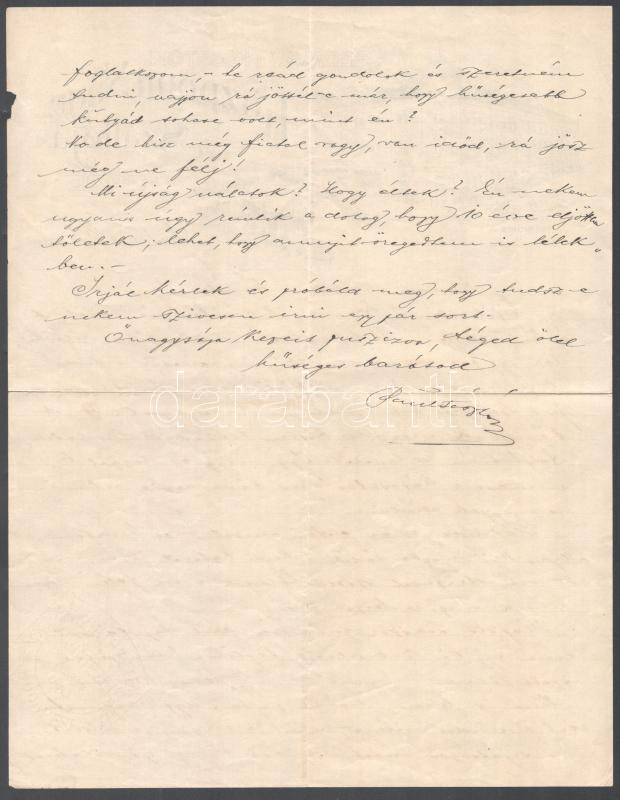 foglalkozom, – te reád gondolok és szeretném
tudni, vajjon rá jöttél-e már, hogy hűségesebb
kutyád sohase volt, mint én?
No de hisz még fiatal vagy, van időd, rá jösz
még ne félj!
Mi újság nálatok? Hogy éltek? Én nekem
ugyanis úgy rémlik a dolog hogy 10 éve eljöttem
tőletek; lehet, hogy annyit öregedtem is lélek„
ben. –
Irjál kérlek és próbáld meg, hogy tudsz-e
nekem szivesen irni egy pár sort.
Őnagysága kezeit puszizva, téged ölel
hűséges barátod
darabanth